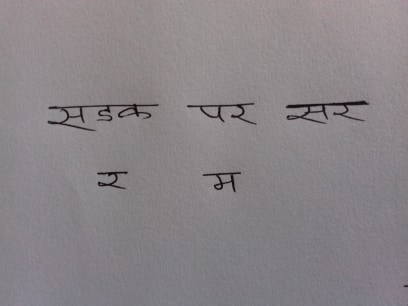 सडक पर सर
र म